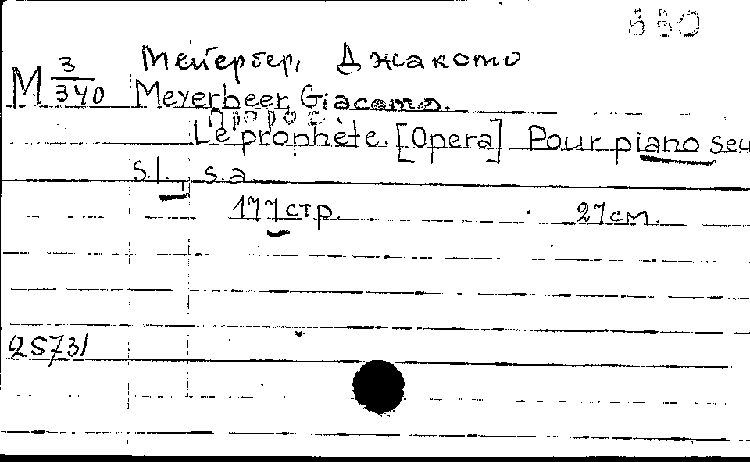 880
Мейербер, Джакомо
М 3/340 Meyerbeer, Giacomo.
Пророк
Le prophète. [Opera] Pour piano seu
s.l., s.a
177 стр. 27 см.
25731